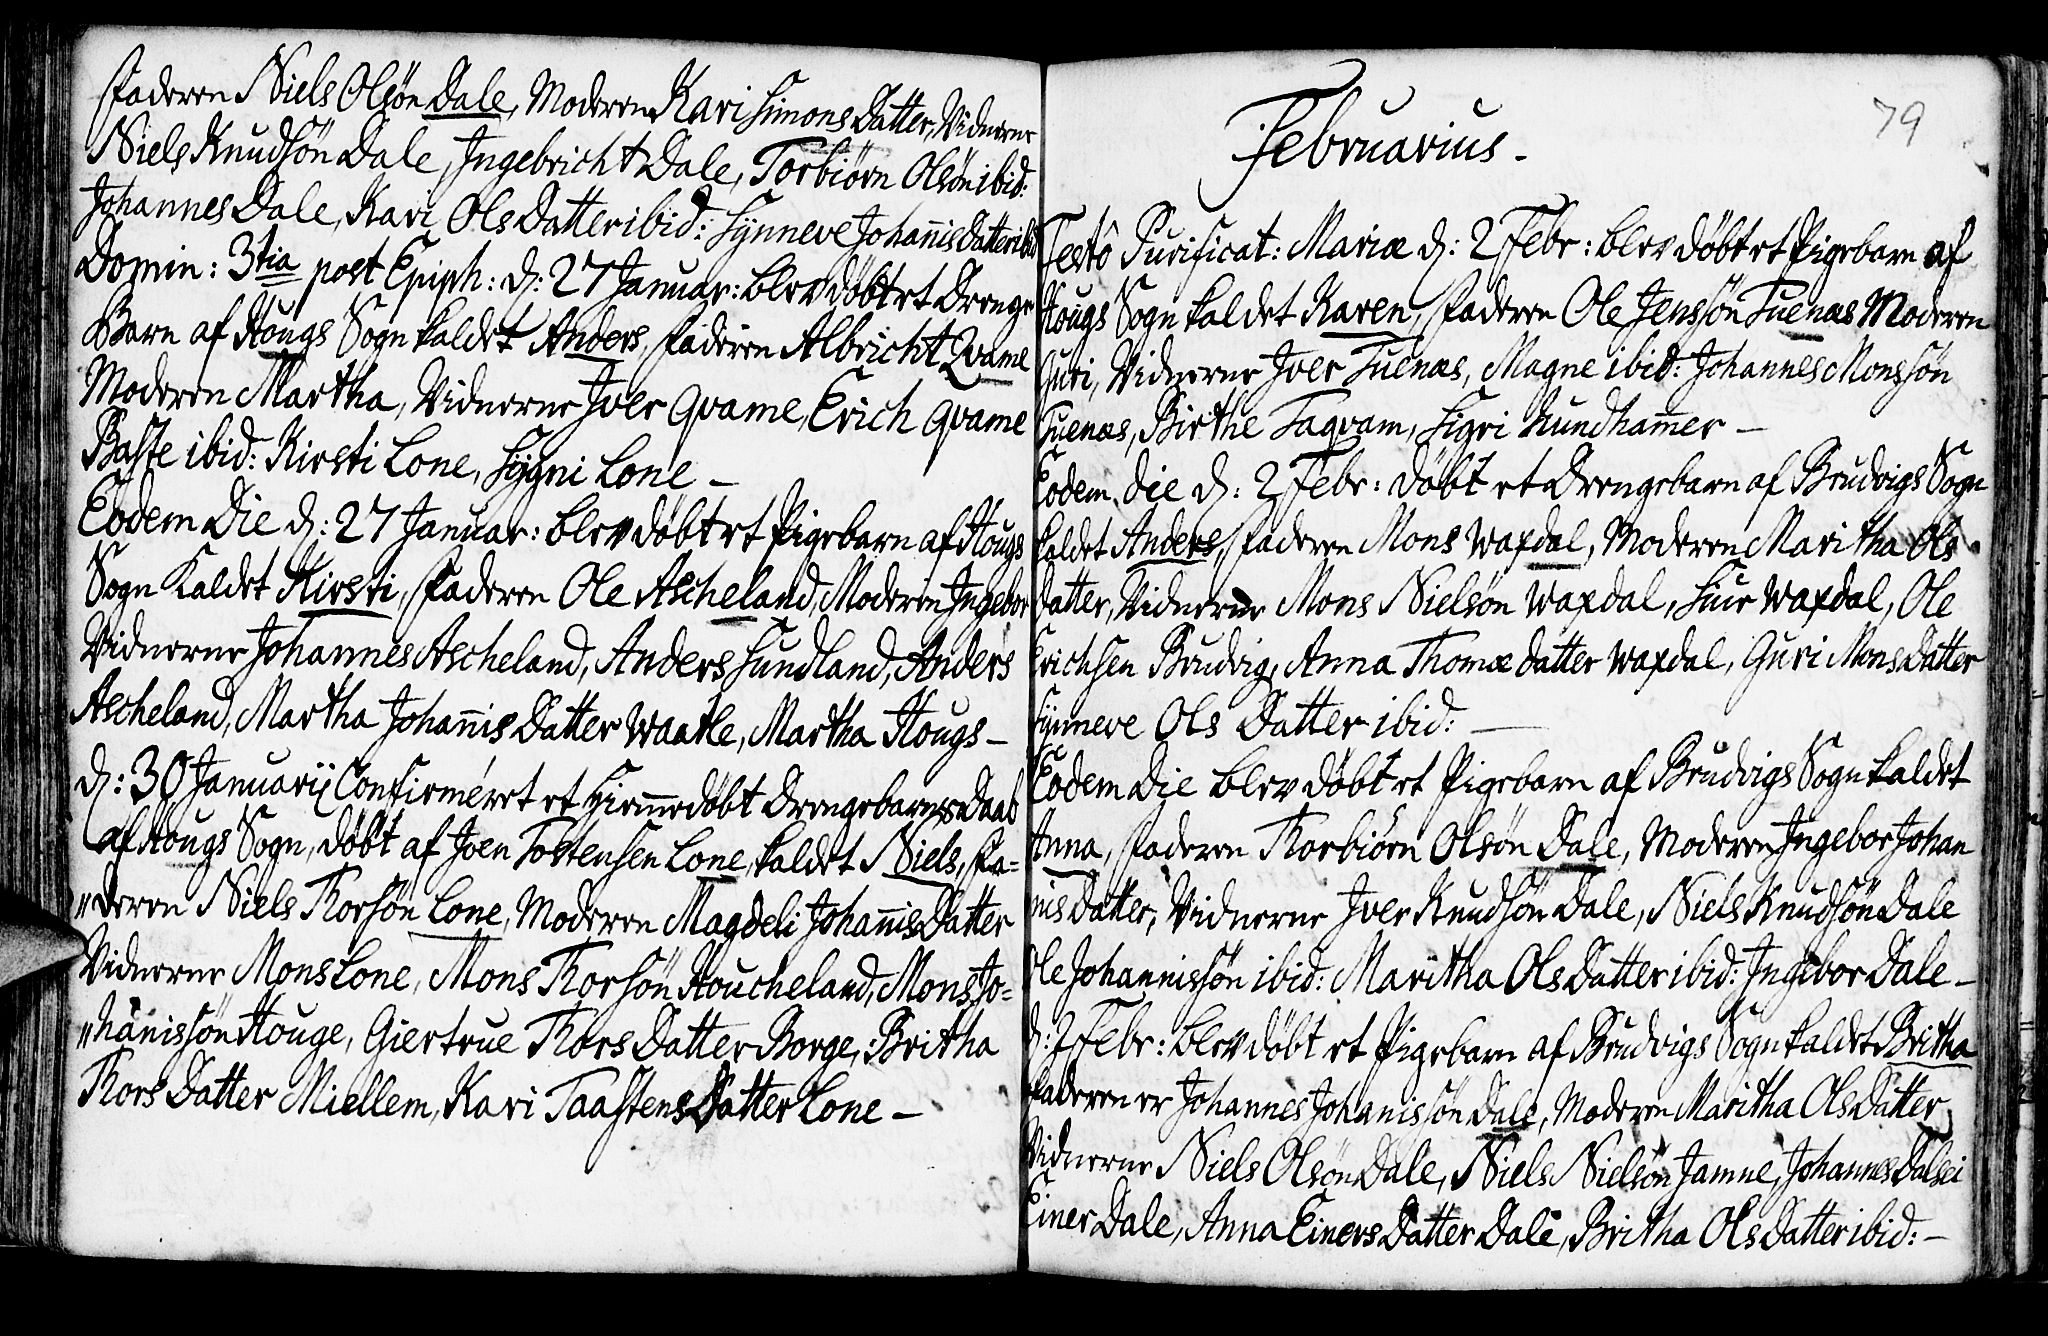 Faderen Niels Olsön Dale, Moderen Kari Simons Datter, Vidnerne
Niels Knudsön Dale, Ingebricht Dale, Torbiörn Olsön ibid:
Johannes Dale, Kari Ols Datter ibid: Synneve Johan̄is Datter ibid
Domin: 3tia post Epiph: d: 27 Januar: blev döbt et Drenge
Barn af Hougs Sogn kaldet Anders, Faderen Albricht Qvame
Moderen Martha, Vidnerne Iver Qvame, Erich Qvame
Baste ibid: Kirsti Lone, Sygni Lone –
Eodem Die d: 27 Januar: blev döbt et Pigebarn af Hougs
Sogn Kaldet Kirsti, Faderen Ole Ascheland, Moderen Ingebor
Vidnerne Johannes Ascheland, Anders Sundland, Anders
Ascheland, Martha Johan̄is Datter Waatle, Martha Hougs –
d: 30 Januarij Confirméret et Hiemmedöbt Drengebarns Daab
af Hougs Sogn, döbt af Joen Tostensen Lone, kaldet Niels, Fa=
"deren Niels Thorsön Lone, Moderen Magdeli Johan̄is Datter
Vidnerne Mons Lone, Mons Thorsön Houcheland, Mons Jo=
"han̄issön Houge, Giertrue Thors Datter Borge, Britha
Thors Datter Miellem, Kari Taastens Datter Lone –
79
Februarius –
Festô Purificat: Mariæ d: 2 Febr: blev döbt et Pigebarn af
Hougs Sogn kaldet Karen, Faderen Ole Jenssön Tuenæs Moderen
Guri, Vidnerne Iver Tuenæs, Magne ibid: Johannes Monssön
Tuenæs, Birthe Taqvam, Sigri Hundham̄er –
Eodem die d: 2 Febr: döbt et Drengebarn af Brudvigs Sogn
kaldet Anders, Faderen Mons Waxdal, Moderen Maritha Ols
Datter, Vidnerne Mons Nielsön Waxdal, Siur Waxdal, Ole
Erichsen Brudvig, Anna Thomæ datter Waxdal, Guri Mons Datter
Synneve Ols Datter ibid: –
Eodem Die blev döbt et Pigebarn af Brudvigs Sogn kaldet
Anna, Faderen Thorbiörn Olsön Dale, Moderen Ingebor Johan
nis Datter, Vidnerne Iver Knudsön Dale, Niels Knudsön Dale
Ole Johannissön ibid: Maritha Ols Datter ibid: Ingebor Dale –
d: 2 Febr: blev döbt et Pigebarn af Brudvigs Sogn kaldet Britha
Faderen er Johannes Johanissön Dale, Moderen Maritha Ols Datter
Vidnerne Niels Olsön Dale, Niels Nielsön Jamne, Johannes Dalsei
Einer Dale, Anna Einers Datter Dale, Britha Ols Datter ibid: –